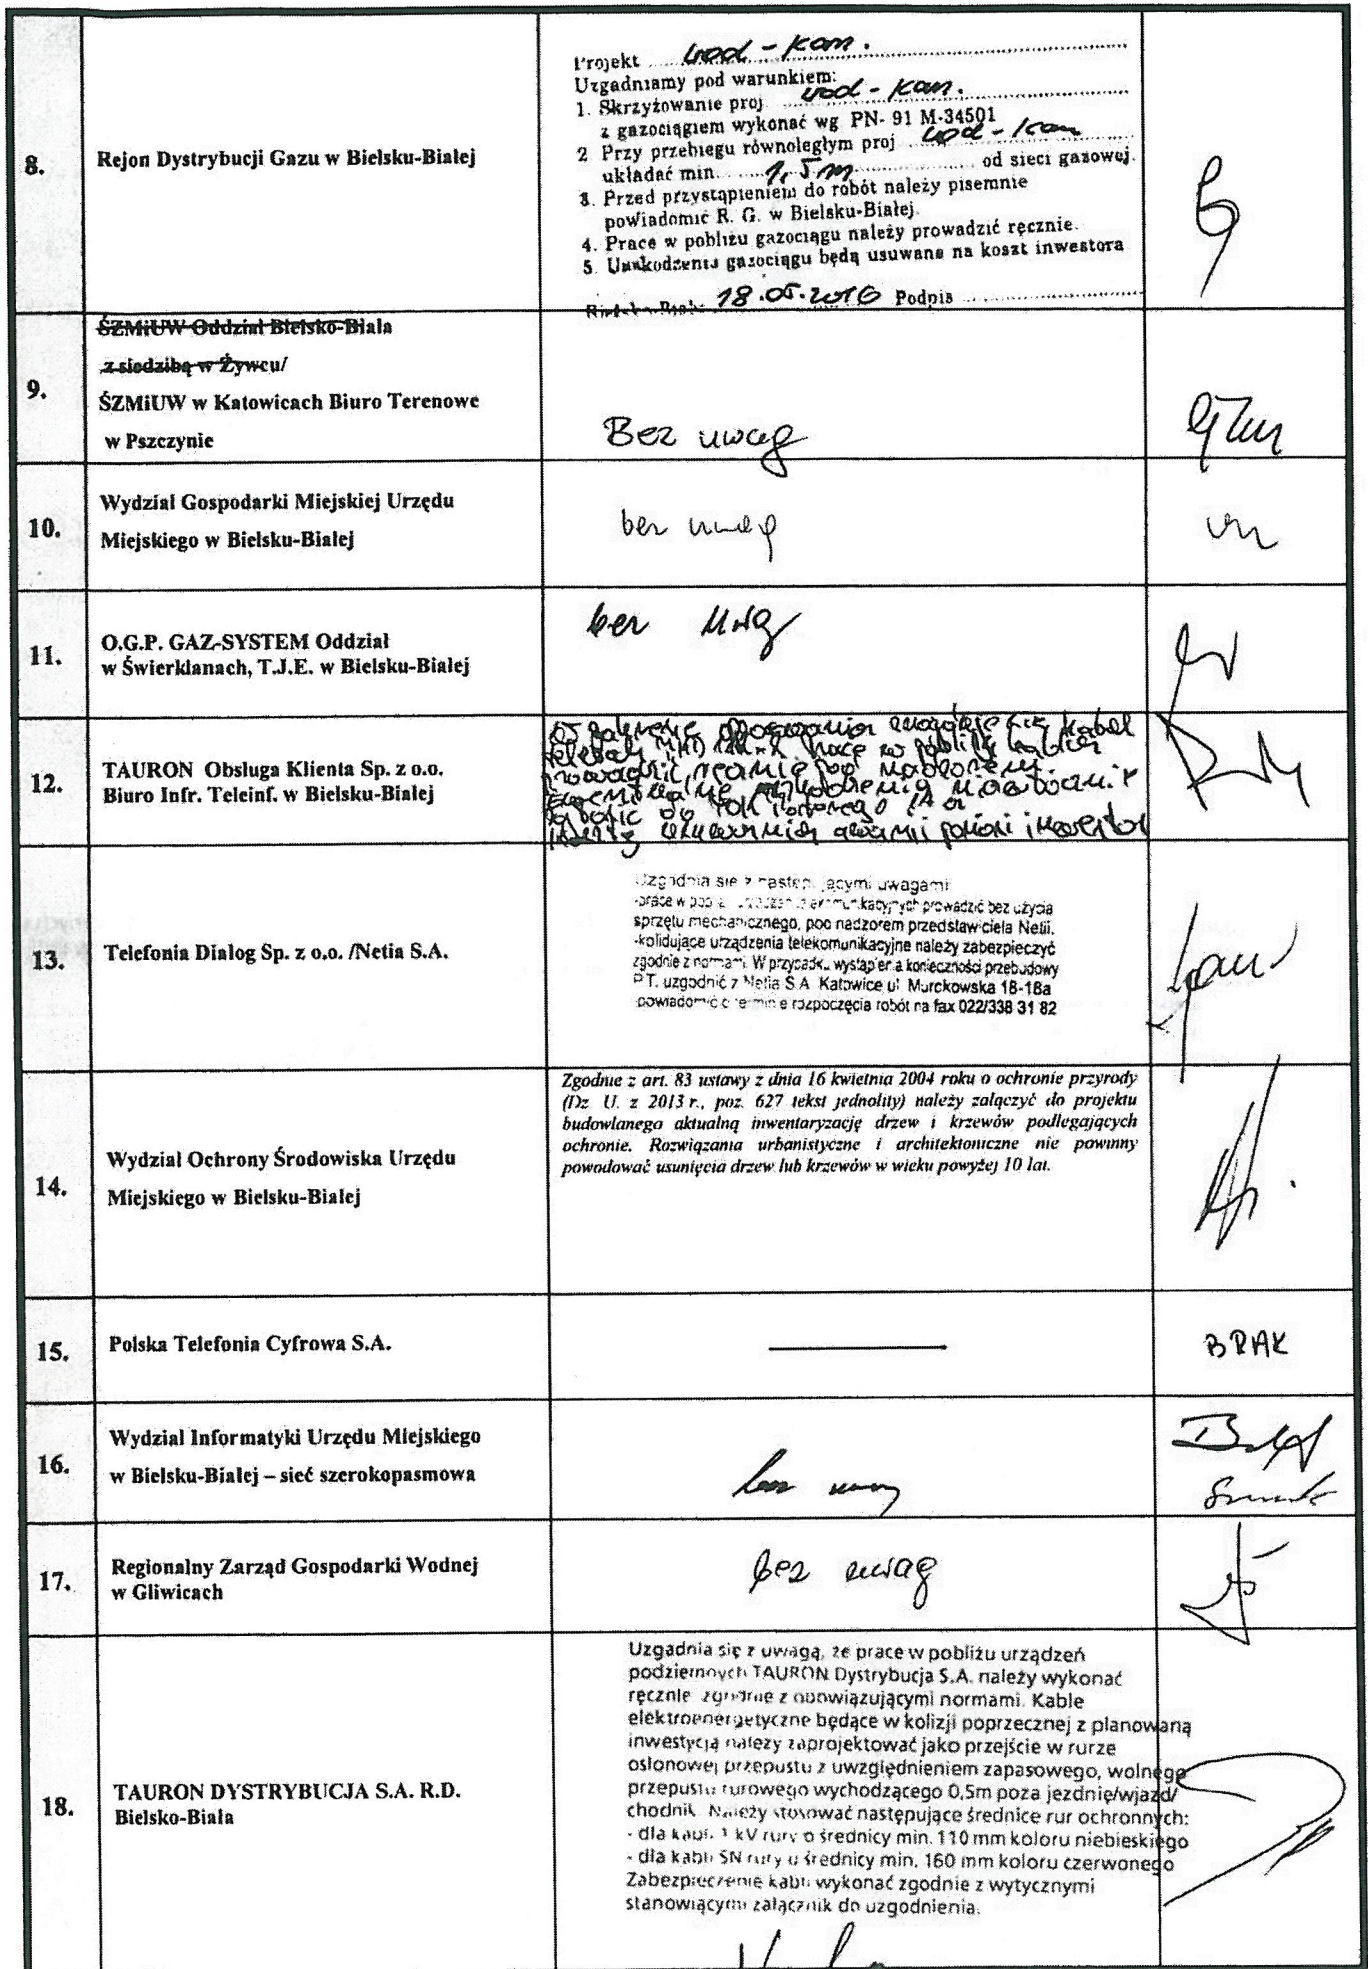 8.
Rejon Dystrybucji Gazu w Bielsku-Białej
Projekt wod-kan.
Uzgadniamy pod warunkiem:
1. Skrzyżowanie proj wod-kan.
z gazociągiem wykonać wg PN- 91 M-34501
2 Przy przebiegu równoległym proj wod-kan
układać min. 1,5m od sieci gazowej.
3. Przed przystąpieniem do robót należy pisemnie
powiadomić R. G. w Bielsku-Białej.
4. Prace w pobliżu gazociągu należy prowadzić ręcznie.
5. Uszkodzenia gazociągu będą usuwane na koszt inwestora
18.05.2016 Podpis
9.
ŚZMiUW Oddział Bielsko-Biała
z siedzibą w Żywcu/
ŚZMiUW w Katowicach Biuro Terenowe
w Pszczynie
Bez uwag
10.
Wydział Gospodarki Miejskiej Urzędu
Miejskiego w Bielsku-Białej
bez uwag
11.
O.G.P. GAZ-SYSTEM Oddział
w Świerklanach, T.J.E. w Bielsku-Białej
bez uwag
12.
TAURON Obsługa Klienta Sp. z o.o.
Biuro Infr. Teleinf. w Bielsku-Białej
W zakresie opracowania znajduje się kabel
prace w pobliżu kabla
prowadzić ręcznie pod nadzorem.
awarii ponosi inwestor
13.
Telefonia Dialog Sp. z o.o. /Netia S.A.
Uzgadnia sie z następującymi uwagami
-prace w prowadzić bez użycia
sprzętu mechanicznego, pod nadzorem przedstawiciela Netii.
-kolidujące urządzenia telekomunikacyjne należy zabezpieczyć
zgodnie z normami. W przypadku wystąpienia konieczności przebudowy
P.T. uzgodnić z Netia S.A. Katowice ul. Murckowska 18-18a
-powiadomić o terminie rozpoczęcia robót na fax 022/338 31 82
14.
Wydział Ochrony Środowiska Urzędu
Miejskiego w Bielsku-Białej
Zgodnie z art. 83 ustawy z dnia 16 kwietnia 2004 roku o ochronie przyrody
(Dz. U. z 2013 r., poz. 627 tekst jednolity) należy załączyć do projektu
budowlanego aktualną inwentaryzację drzew i krzewów podlegających
ochronie. Rozwiązania urbanistyczne i architektoniczne nie powinny
powodować usunięcia drzew lub krzewów w wieku powyżej 10 lat.
15.
Polska Telefonia Cyfrowa S.A.
BRAK
16.
Wydział Informatyki Urzędu Miejskiego
w Bielsku-Białej – sieć szerokopasmowa
bez uwag
17.
Regionalny Zarząd Gospodarki Wodnej
w Gliwicach
bez uwag
18.
TAURON DYSTRYBUCJA S.A. R.D.
Bielsko-Biała
Uzgadnia się z uwagą, że prace w pobliżu urządzeń
podziemnych TAURON Dystrybucja S.A. należy wykonać
ręcznie zgodnie z obowiązującymi normami. Kable
elektroenergetyczne będące w kolizji poprzecznej z planowaną
inwestycją należy zaprojektować jako przejście w rurze
osłonowej przepustu z uwzględnieniem zapasowego, wolnego
przepustu rurowego wychodzącego 0,5m poza jezdnię/wjazd/
chodnik. Należy stosować następujące średnice rur ochronnych:
- dla kabli 1 kV rury o średnicy min. 110 mm koloru niebieskiego
- dla kabli SN rury o średnicy min. 160 mm koloru czerwonego
Zabezpieczenie kabli wykonać zgodnie z wytycznymi
stanowiącymi załącznik do uzgodnienia.